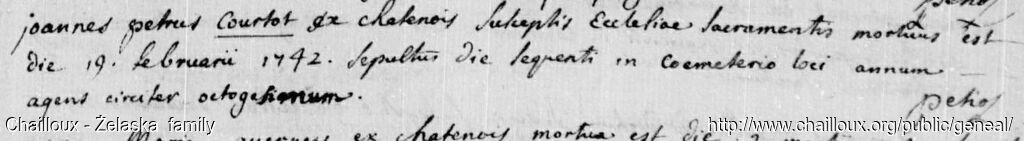 petios
joannes petrus Courtot ex chatenois susceptis Ecclesiae sacramentis mortuus est
die 19. februarii 1742. sepultus die sequenti in coemeterio loci annum
agens circiter octogesimum.
petios
Maria ex chatenois mortua est die
Chailloux - Żelaska family
http://www.chailloux.org/public/geneal/